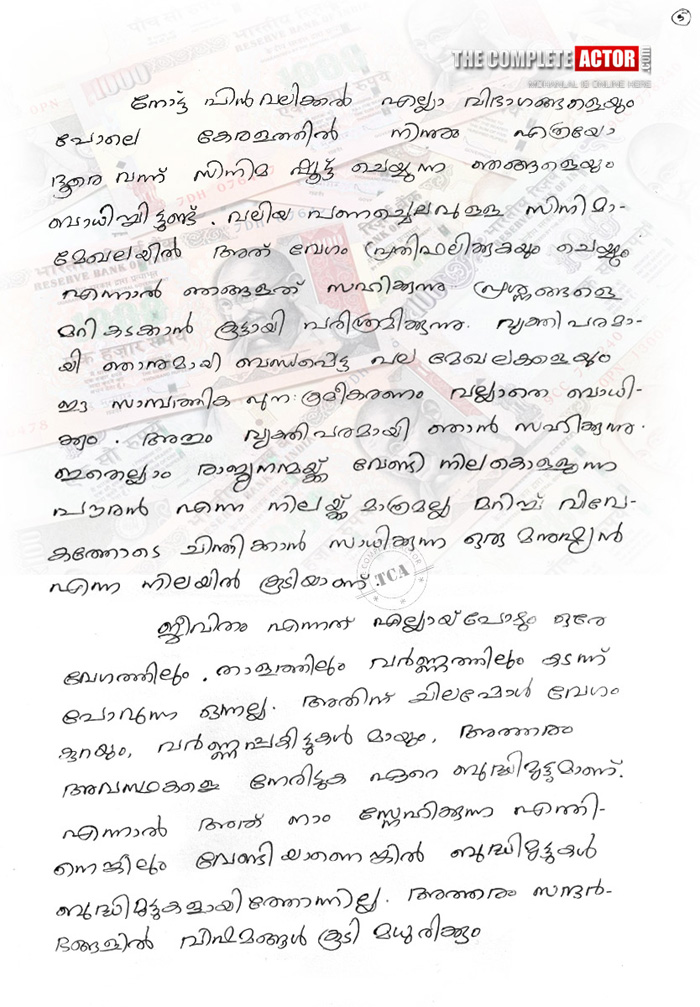 5
THE COMPLETE ACTOR.com
MOHANLAL IS ONLINE HERE
നോട്ട് പിൻവലിക്കൽ എല്ലാ വിഭാഗങ്ങളെയും
പോലെ കേരളത്തിൽ നിന്നും എത്രയോ
ദൂരെ വന്ന് സിനിമ ഷൂട്ട് ചെയ്യുന്ന ഞങ്ങളെയും
ബാധിച്ചിട്ടുണ്ട്. വലിയ പണച്ചെലവുള്ള സിനിമാ-
മേഖലയിൽ അത് വേഗം പ്രതിഫലിക്കുകയും ചെയ്യും
എന്നാൽ ഞങ്ങളത് സഹിക്കുന്നു പ്രശ്നങ്ങളെ
മറികടക്കാൻ കൂട്ടായി പരിശ്രമിക്കുന്നു. വ്യക്തിപരമാ-
യി ഞാനുമായി ബന്ധപ്പെട്ട പല മേഖലകളെയും
ഈ സാമ്പത്തിക പുന:ക്രമീകരണം വല്ലാതെ ബാധി-
ക്കും. അതും വ്യക്തിപരമായി ഞാൻ സഹിക്കുന്നു.
ഇതെല്ലാം രാജ്യനന്മയ്ക്ക് വേണ്ടി നിലകൊള്ളുന്ന
പൗരൻ എന്ന നിലയ്ക്ക് മാത്രമല്ല മറിച്ച് വിവേ-
കത്തോടെ ചിന്തിക്കാൻ സാധിക്കുന്ന ഒരു മനുഷ്യൻ
എന്ന നിലയിൽ കൂടിയാണ്.
TCA
ജീവിതം എന്നത് എല്ലായ്പോഴും ഒരേ
വേഗത്തിലും, താളത്തിലും വർണ്ണത്തിലും കടന്ന്
പോവുന്ന ഒന്നല്ല. അതിന് ചിലപ്പോൾ വേഗം
കുറയും, വർണ്ണപ്പകിട്ടുകൾ മായും, അത്തരം
അവസ്ഥകളെ നേരിടുക ഏറെ ബുദ്ധിമുട്ടുമാണ്.
എന്നാൽ അത് നാം സ്നേഹിക്കുന്ന എന്തി-
നെങ്കിലും വേണ്ടിയാണെങ്കിൽ ബുദ്ധിമുട്ടുകൾ
ബുദ്ധിമുട്ടുകളായിത്തോന്നില്ല. അത്തരം സന്ദർ-
ഭങ്ങളിൽ വിഷമങ്ങൾ കൂടി മധുരിക്കും